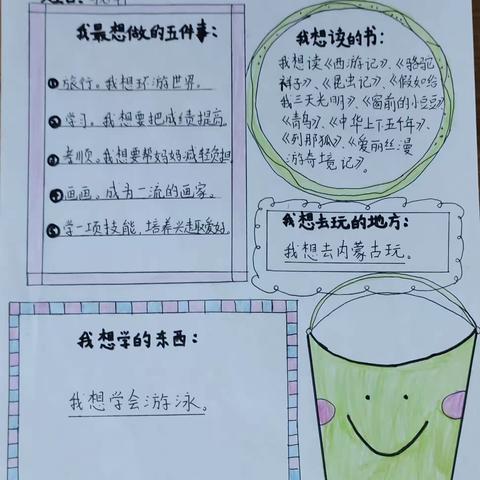 我最想做的五件事：
①旅行。我想环游世界。
②学习。我想要把成绩提高。
③孝顺。我想要帮妈妈减轻负担
④画画。成为一流的画家。
⑤学一项技能，培养兴趣爱好。
我想读的书：
我想读《西游记》、《骆驼
祥子》、《昆虫记》、《假如给
我三天光明》、《窗前的小豆豆》
《青鸟》、《中华上下五千年》、
《列那狐》、《爱丽丝漫
游奇境记》。
我想去玩的地方：
我想去内蒙古玩。
我想学的东西：
我想学会游泳。